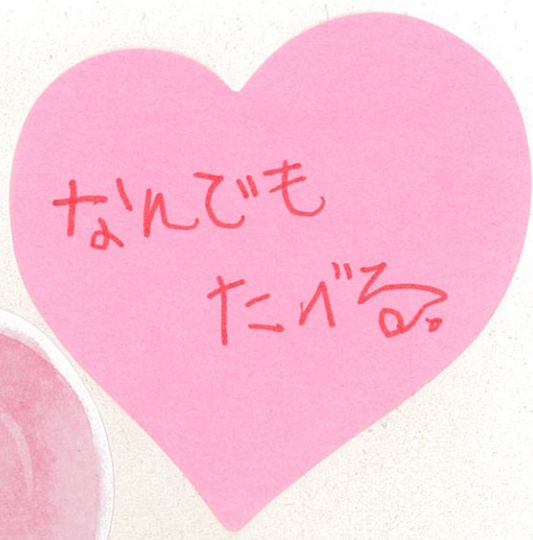 なんでも
たべる。